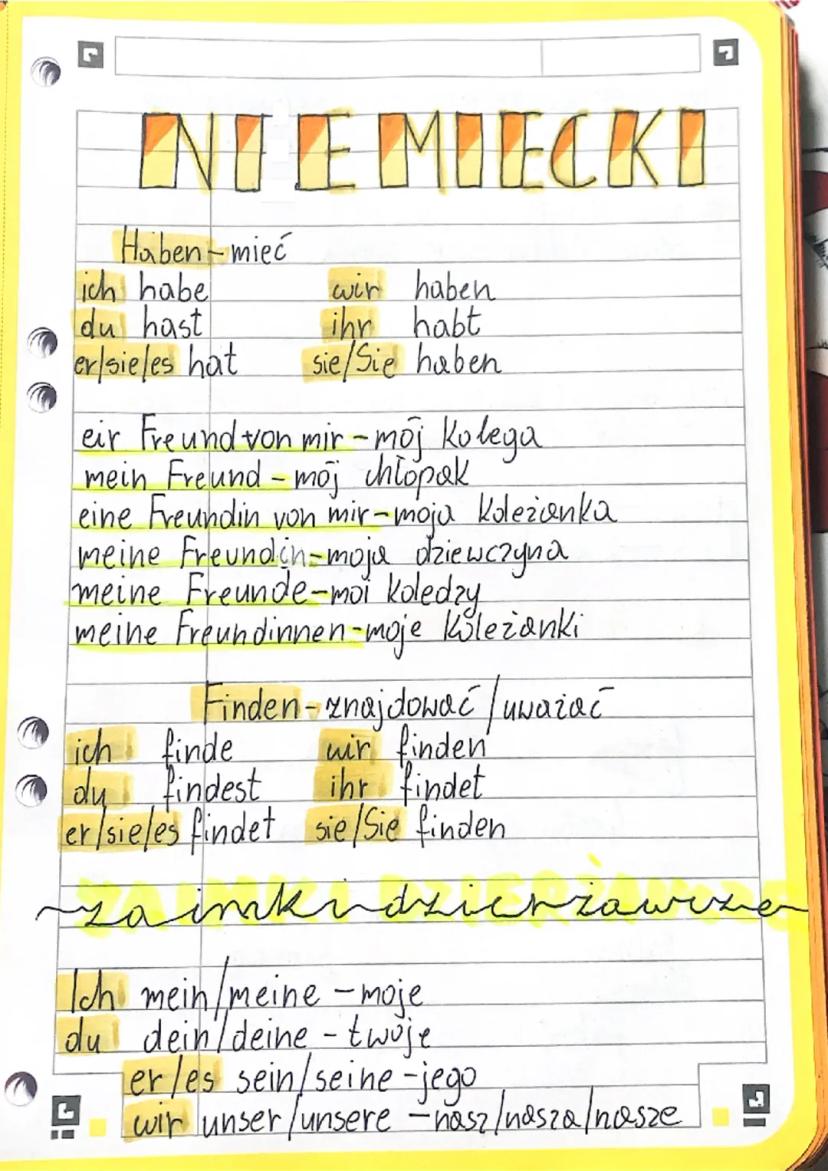 NIEMIECKI
Haben - mieć
ich habe wir haben
du hast ihr habt
er/sie/es hat sie/Sie haben
eir Freund von mir - mój kolega
mein Freund - mój chłopak
eine Freundin von mir - moja koleżanka
meine Freundin - moja dziewczyna
meine Freunde - moi koledzy
meine Freundinnen - moje koleżanki
Finden - znajdować/uważać
ich finde wir finden
du findest ihr findet
er/sie/es findet sie/Sie finden
zaimki dzierżawcze
Ich mein/meine - moje
du dein/deine - twoje
er/es sein/seine - jego
wir unser/unsere - nasz/nasza/nasze